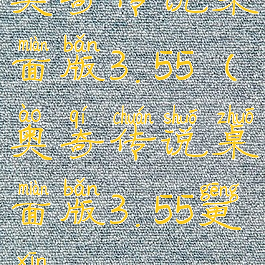 奥奇传说桌
miàn bǎn
面版3.55（
ào qí chuán shuō zhuō
奥奇传说桌
miàn bǎn gēng
面版3.55更
xīn